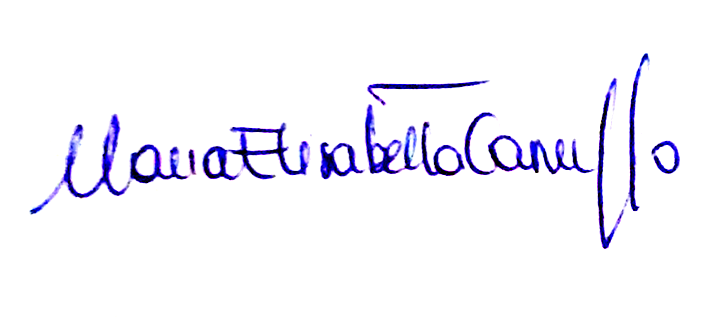 Maria Elisabetta Canuffo